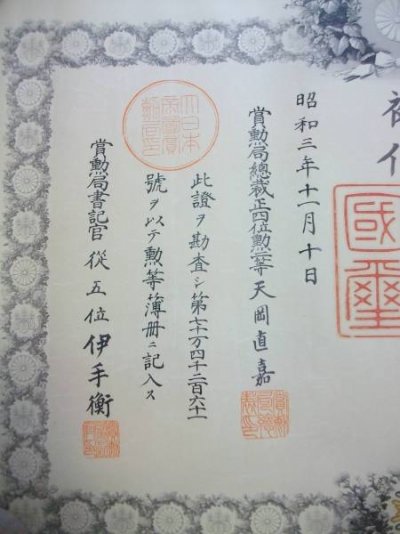 國璽
昭和三年十一月十日
賞勲局總裁正四位勲二等天岡直嘉
此證ヲ勘査シ第七十万四千二百六十一
號ヲ以テ勲等簿册ニ記入ス
大日本
賞勲局書記官從五位伊手衡